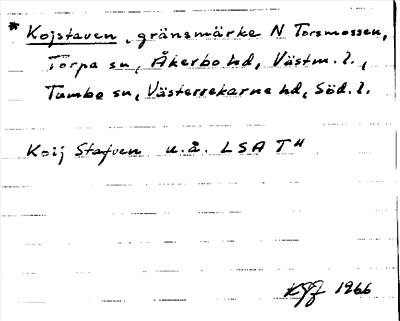 * Kojstaven, gränsmärke N Torsmossen,
Torpa sn, Åkerbo hd, Västm. l.,
Tumbo sn, Västerrekarne hd, Söd. l.
Koij Stafven u.å. LSA T4
1966